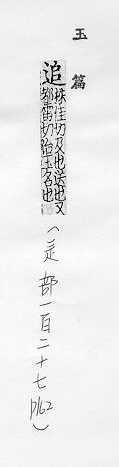 玉篇
追
株佳切及也送也又
都雷切治玉名也
(辵部一百二十七 P162)